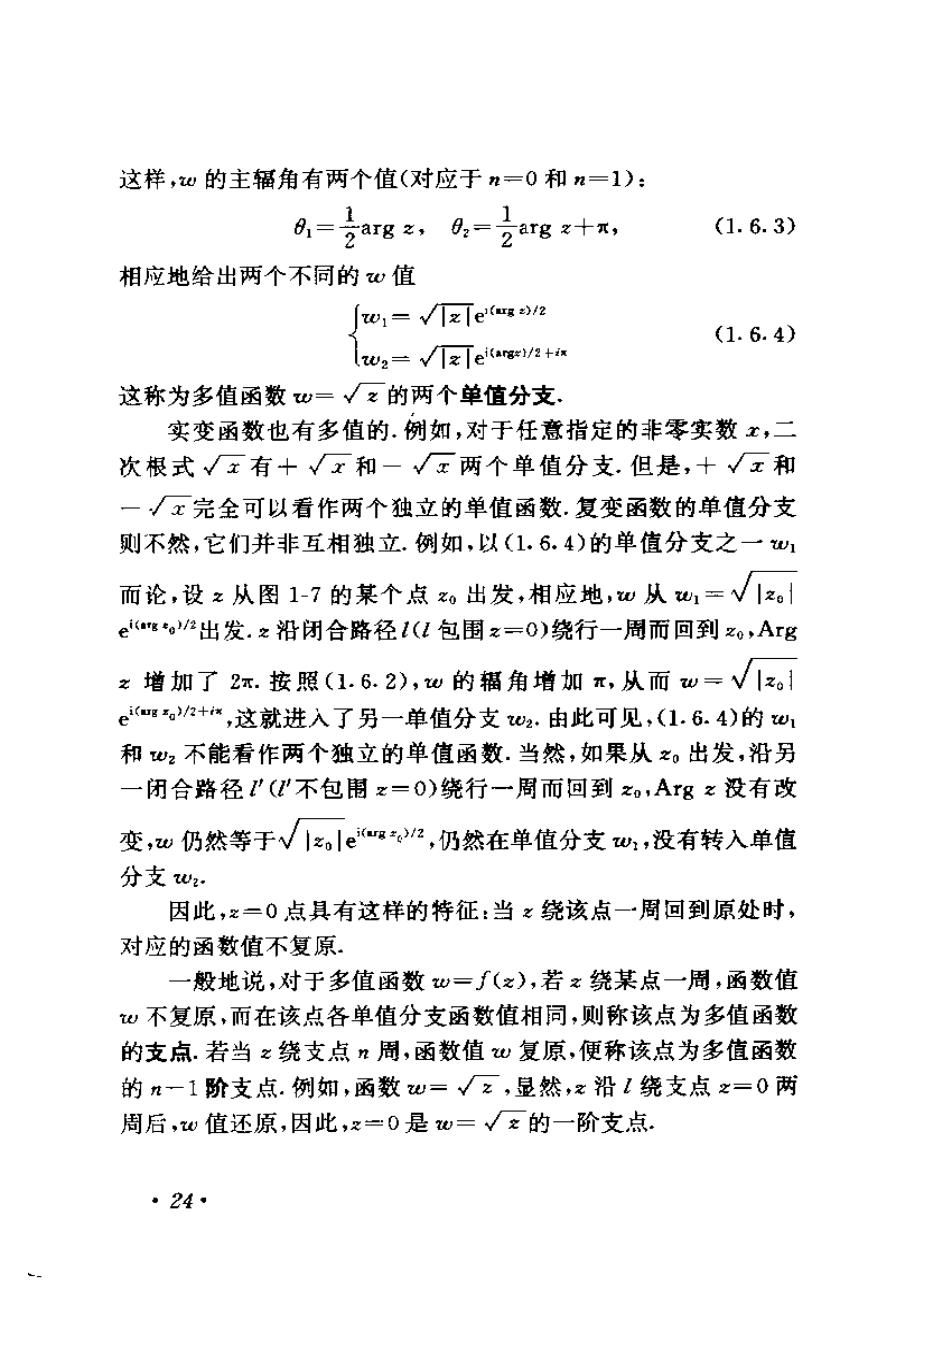 这样,w 的主辐角有两个值(对应于 n=0 和 n=1):
θ₁=½arg z, θ₂=½arg z+π, (1.6.3)
相应地给出两个不同的 w 值
{w₁=√|z|e^{i(arg z)/2}
w₂=√|z|e^{i(argz)/2+iπ} (1.6.4)
这称为多值函数 w=√z 的两个单值分支.
实变函数也有多值的.例如,对于任意指定的非零实数 x,二
次根式√x有+√x和-√x两个单值分支.但是,+√x和
-√x完全可以看作两个独立的单值函数.复变函数的单值分支
则不然,它们并非互相独立.例如,以(1.6.4)的单值分支之一 w₁
而论,设 z 从图 1-7 的某个点 z₀ 出发,相应地,w 从 w₁=√|z₀|
e^{i(arg z₀)/2}出发.z 沿闭合路径 l(l 包围 z=0)绕行一周而回到 z₀,Arg
z 增加了 2π.按照(1.6.2),w 的辐角增加 π,从而 w=√|z₀|
e^{i(arg z₀)/2+iπ},这就进入了另一单值分支 w₂.由此可见,(1.6.4)的 w₁
和 w₂ 不能看作两个独立的单值函数.当然,如果从 z₀ 出发,沿另
一闭合路径 l′(l′不包围 z=0)绕行一周而回到 z₀,Arg z 没有改
变,w 仍然等于√|z₀|e^{i(arg z₀)/2},仍然在单值分支 w₁,没有转入单值
分支 w₂.
因此,z=0 点具有这样的特征:当 z 绕该点一周回到原处时,
对应的函数值不复原.
一般地说,对于多值函数 w=f(z),若 z 绕某点一周,函数值
w 不复原,而在该点各单值分支函数值相同,则称该点为多值函数
的支点.若当 z 绕支点 n 周,函数值 w 复原,便称该点为多值函数
的 n-1 阶支点.例如,函数 w=√z,显然,z 沿 l 绕支点 z=0 两
周后,w 值还原,因此,z=0 是 w=√z的一阶支点.
· 24 ·